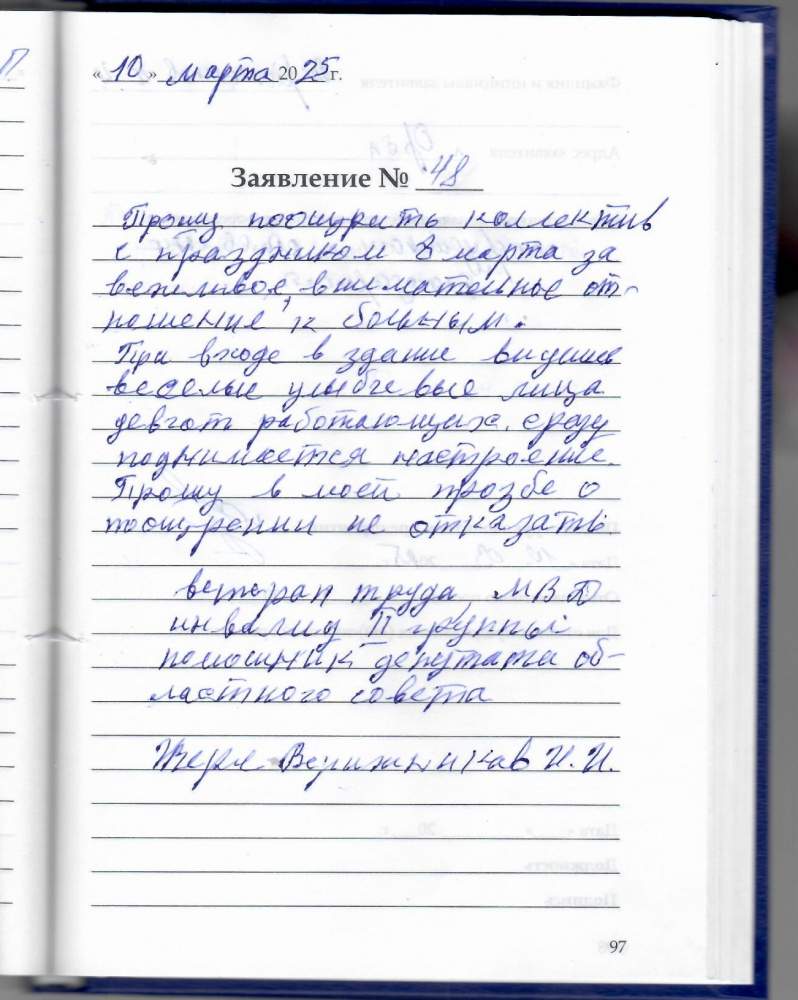 «10» марта 2025 г.
Заявление № 48
Прошу поощрить коллектив
с праздником 8 марта за
вежливое, внимательное от-
ношение к больным.
При входе в здание видишь
веселые улыбчевые лица
девчат работающих. сразу
поднимается настроение.
Прошу в моей прозбе о
поощрении не отказать.
ветеран труда, МВД
инвалид II группы
помошник депутата об-
ластного совета
И.И.
97